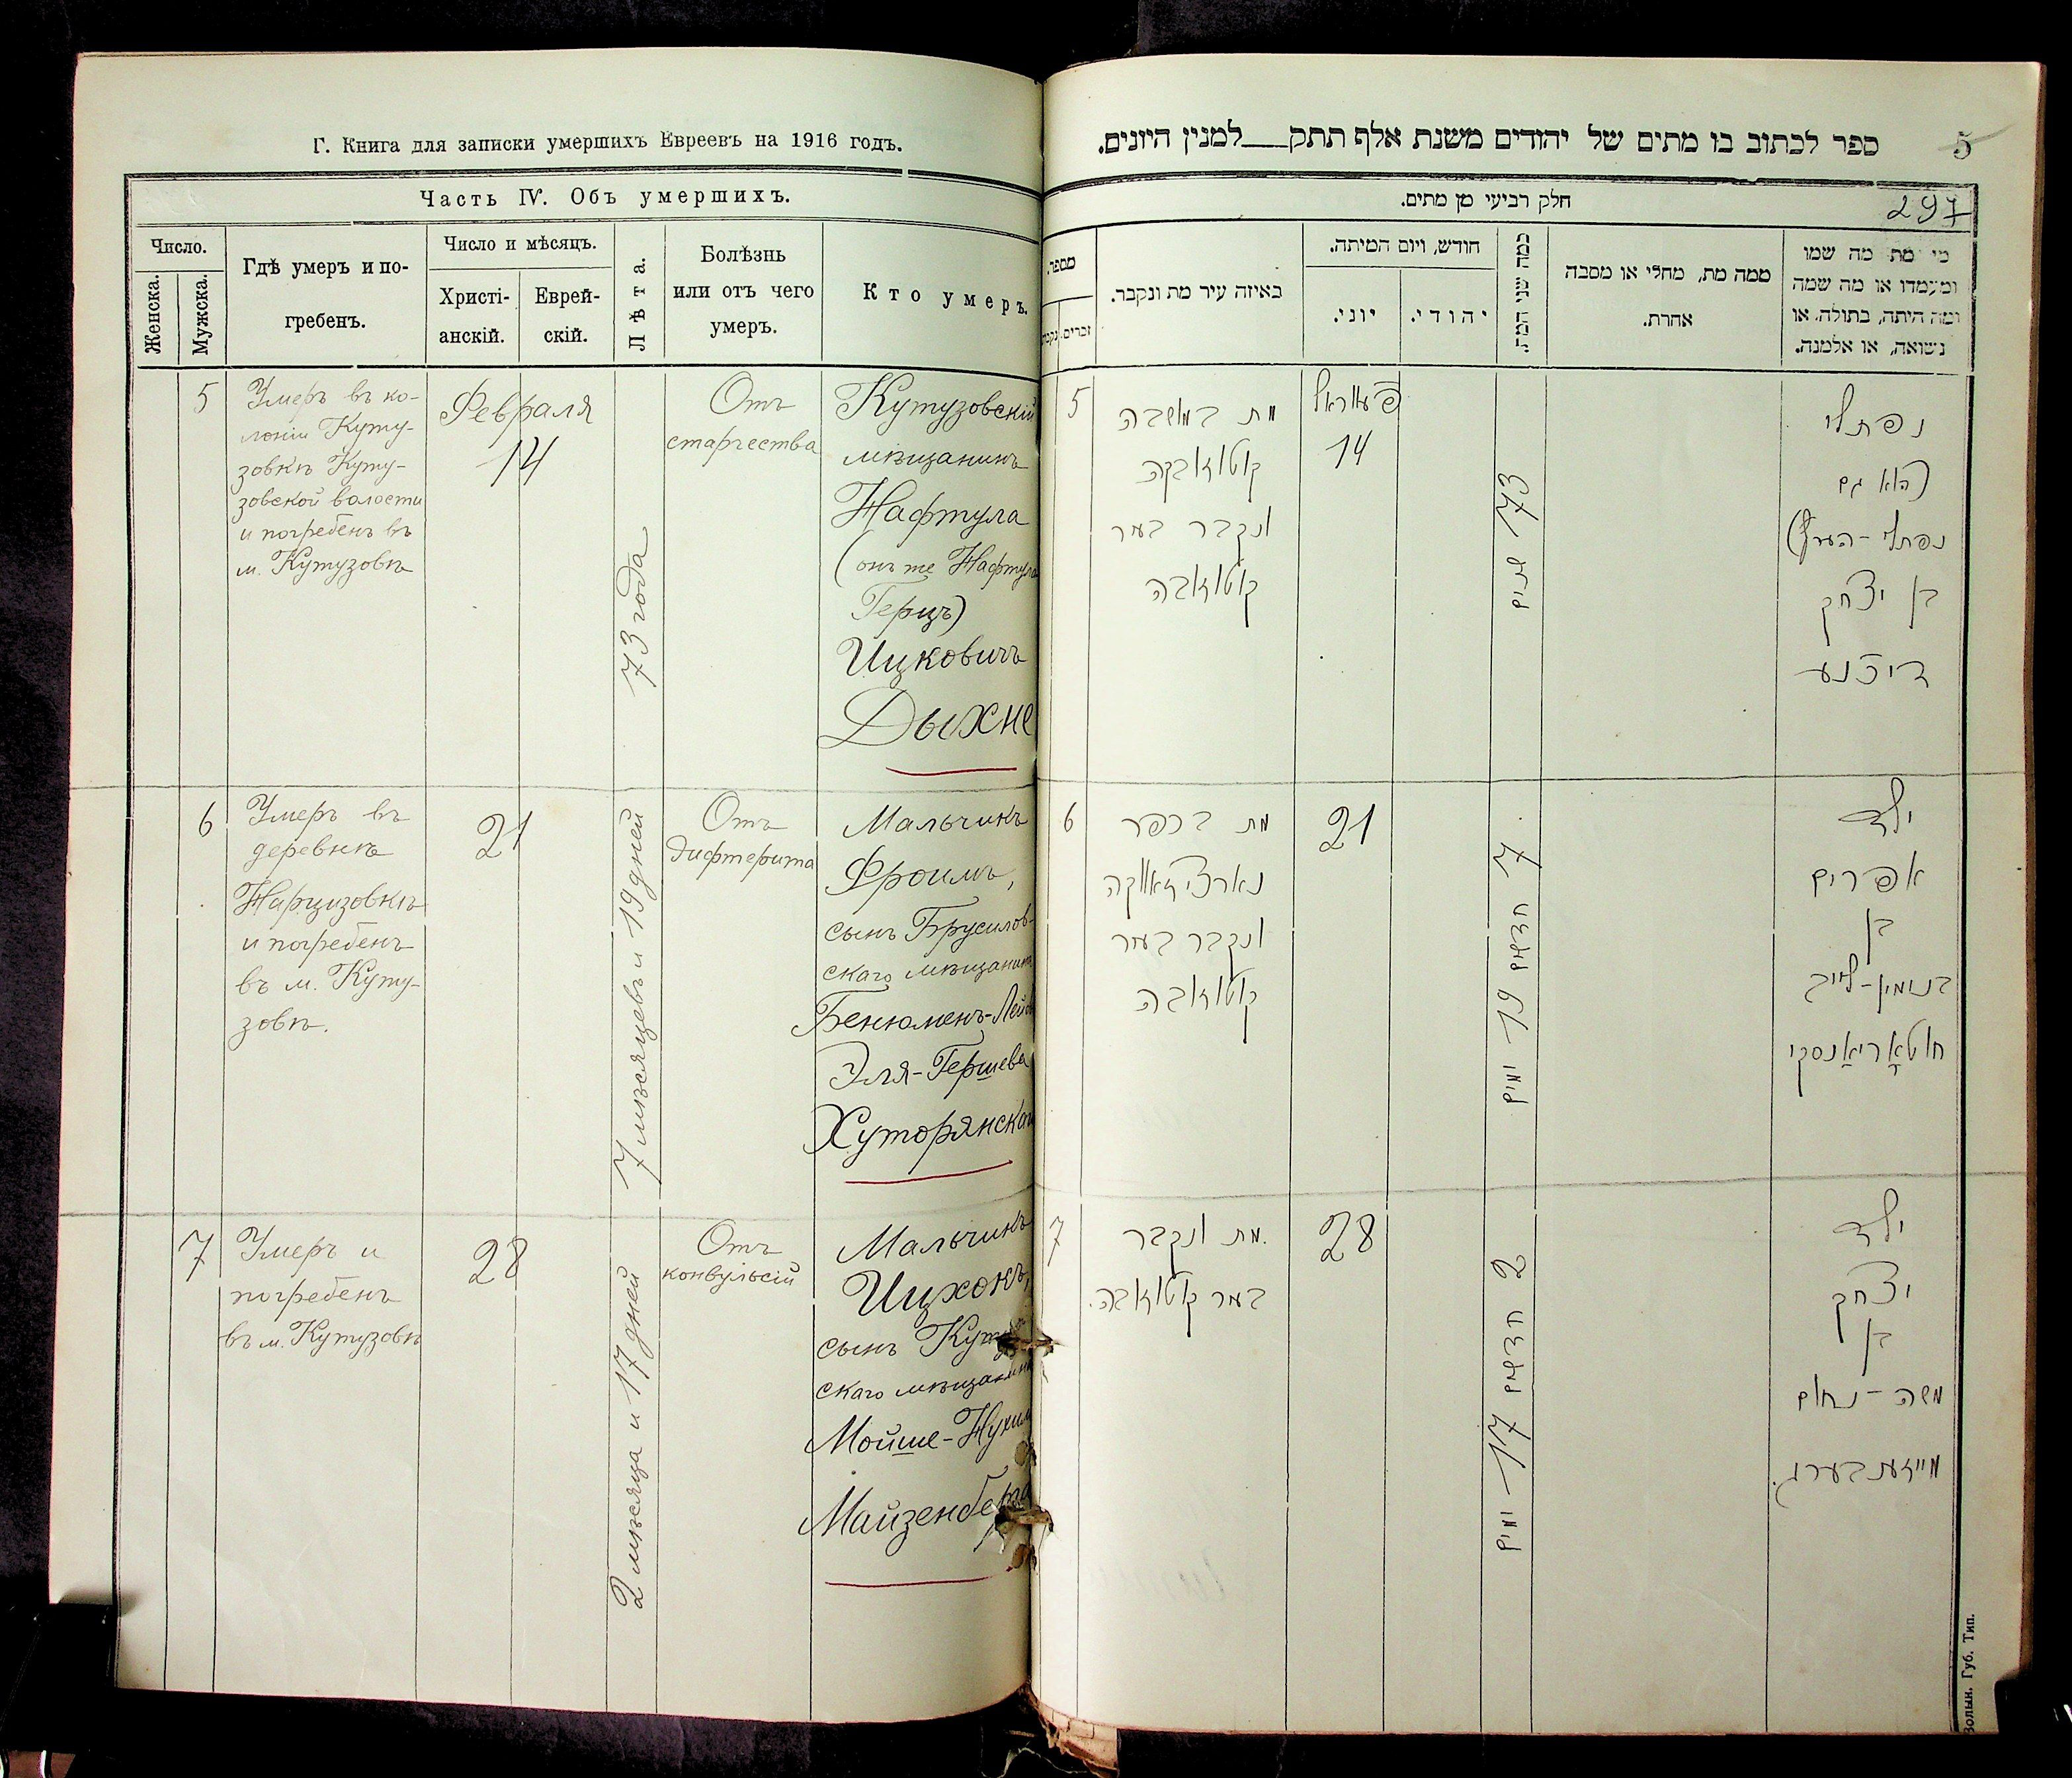 Г. Книга для записки умершихъ Евреевъ на 1916 годъ.
Часть IV. Объ умершихъ.
Число.
Женска.
Мужска.
Гдѣ умеръ и по-
гребенъ.
Число и мѣсяцъ.
Христі-
анскій.
Еврей-
скій.
Лѣта.
Болѣзнь
или отъ чего
умеръ.
Кто умеръ.
5
Умеръ въ ко-
лоніи Куту-
зовкѣ Куту-
зовской волости
и погребенъ въ
м. Кутузовѣ
Февраля
14
73 года
Отъ
старчества
Кутузовскій
мѣщанинъ
Нафтула
(онъ же Нафтула
Герцъ)
Ицковичъ
Дыхне
6
Умеръ въ
деревнѣ
Нарцизовкѣ
и погребенъ
въ м. Куту-
зовѣ.
21
7 мѣсяцевъ и 19 дней
Отъ
дифтерита
Мальчикъ
Фроимъ,
сынъ Брусилов-
скаго мѣщанина
Бенюменъ-Лейба
Эля-Гершева
Хуторянскаго
7
Умеръ и
погребенъ
въ м. Кутузовѣ
28
2 мѣсяца и 17 дней
Отъ
конвульсій
Мальчикъ
Ицхокъ,
сынъ
скаго мѣщанина
Мойше-Нухим
Майзенберга
5
ספר לכתוב בו מתים של יהודים משנת אלף תתק למנין היונים.
297
חלק רביעי מן מתים.
מספר.
זכרים.
באיזה עיר מת ונקבר.
חודש, ויום המיתה.
יוני.
יהודי.
כמה שני המת.
ממה מת, מחלי או מסבה
אחרת.
מי מת מה שמו
ומעמדו או מה שמה
ומה היתה, בתולה, או
נשואה, או אלמנה.
5
מת במושבה
קוטוזובקה
ונקבר בעיר
קוטוזובה
פעווראל
14
73 שנים
נפתלי
(הוא גם
נפתלי-הערץ)
בן יצחק
דיכנע
6
מת בכפר
נארציזאווקה
ונקבר בעיר
קוטוזובה
21
7 חדשים 19 ימים
ילד
אפרים
בן
בנימין-לייב
חוטאָריאַנסקי
7
מת ונקבר
בעיר קוטוזובה.
28
2 חדשים 17 ימים
ילד
יצחק
בן
משה-נחום
מייזענבערג.
Волын. Губ. Тип.